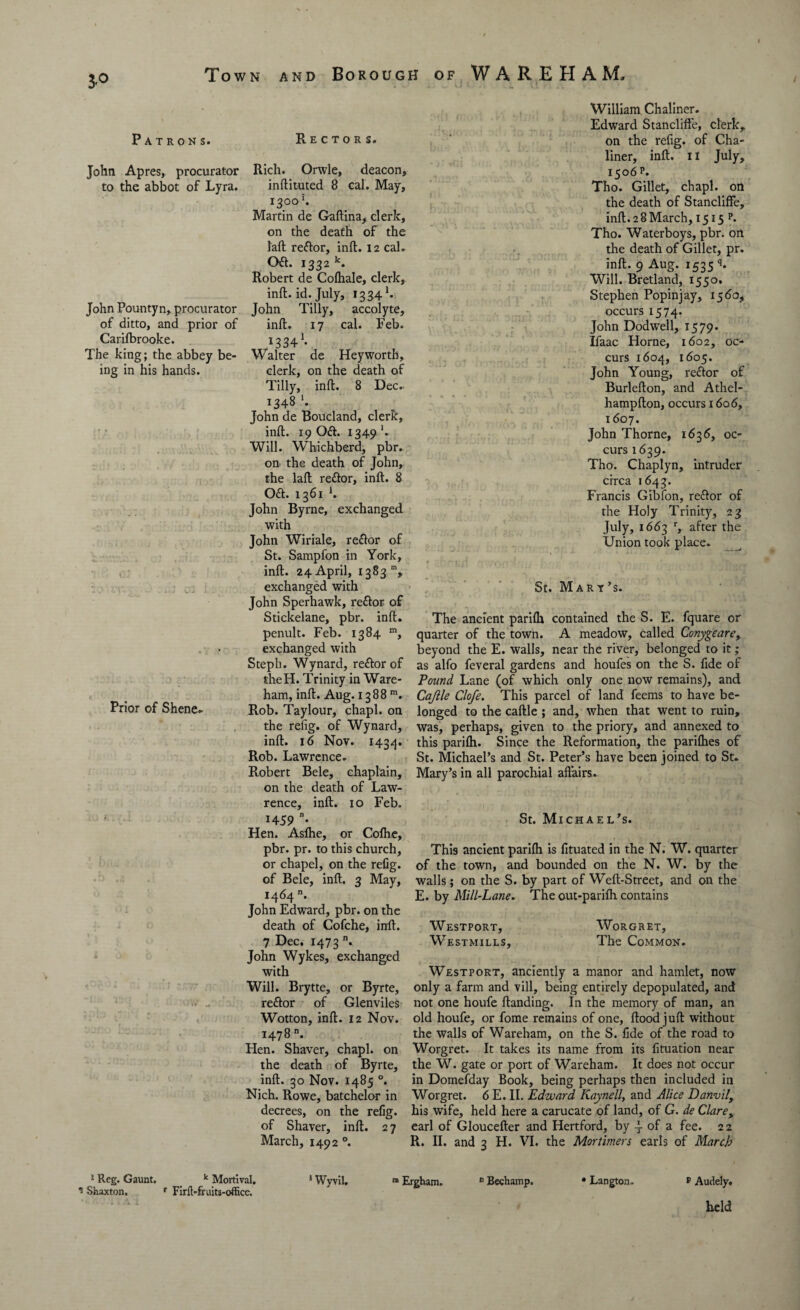 30
Town and Borough of WAREHAM.
Patrons.
John Apres, procurator
to the abbot of Lyra.
John Pountyn, procurator
of ditto, and prior of
Carisbrooke.
The king; the abbey be-
ing in his hands.
Prior of Shene.
Rectors.
Rich. Orwle, deacon,
inſtituted 8 cal. May,
1300 i.
Martin de Gaſtina, clerk,
on the death of the
laſt rector, inſt. 12 cal.
Oct. 1332 k.
Robert de Coſhale, clerk,
inſt. id. July, 1334 l.
John Tilly, accolyte,
inſt. 17 cal. Feb.
1334 l.
Walter de Heyworth,
clerk, on the death of
Tilly, inſt. 8 Dec.
1348 l.
John de Boucland, clerk,
inſt. 19 Oct. 1349 l.
Will. Whichberd, pbr.
on the death of John,
the laſt rector, inſt. 8
Oct. 1361 l.
John Byrne, exchanged
with
John Wiriale, rector of
St. Sampſon in York,
inſt. 24 April, 1383 m,
exchanged with
John Sperhawk, rector of
Stickelane, pbr. inſt.
penult. Feb. 1384 m,
exchanged with
Steph. Wynard, rector of
the H. Trinity in Ware-
ham, inſt. Aug. 1388 m.
Rob. Taylour, chapl. on
the reſig. of Wynard,
inſt. 16 Nov. 1434.
Rob. Lawrence.
Robert Bele, chaplain,
on the death of Law-
rence, inſt. 10 Feb.
1459 n.
Hen. Asſhe, or Coſhe,
pbr. pr. to this church,
or chapel, on the reſig.
of Bele, inſt. 3 May,
1464 n.
John Edward, pbr. on the
death of Coſche, inſt.
7 Dec. 1473 n.
John Wykes, exchanged
with
Will. Brytte, or Byrte,
rector of Glenviles
Wotton, inſt. 12 Nov.
1478 n.
Hen. Shaver, chapl. on
the death of Byrte,
inſt. 30 Nov. 1485 o.
Nich. Rowe, batchelor in
decrees, on the reſig.
of Shaver, inſt. 27
March, 1492 o.
William Chaliner.
Edward Stancliffe, clerk,
on the reſig. of Cha-
liner, inſt. 11 July,
1506 p.
Tho. Gillet, chapl. on
the death of Stancliffe,
inſt. 28 March, 1515 p.
Tho. Waterboys, pbr. on
the death of Gillet, pr.
inſt. 9 Aug. 1535 q.
Will. Bretland, 1550.
Stephen Popinjay, 1560,
occurs 1574.
John Dodwell, 1579.
Iſaac Horne, 1602, oc-
curs 1604, 1605.
John Young, rector of
Burleſton, and Athel-
hampſton, occurs 1606,
1607.
John Thorne, 1636, oc-
curs 1639.
Tho. Chaplyn, intruder
circa 1643.
Francis Gibſon, rector of
the Holy Trinity, 23
July, 1663 r, after the
Union took place.
St. Mary's.
The ancient pariſh contained the S. E. ſquare or
quarter of the town. A meadow, called Conygeare,
beyond the E. walls, near the river, belonged to it;
as alſo ſeveral gardens and houſes on the S. ſide of
Pound Lane (of which only one now remains), and
Caſtle Cloſe. This parcel of land ſeems to have be-
longed to the caſtle; and, when that went to ruin,
was, perhaps, given to the priory, and annexed to
this pariſh. Since the Reformation, the pariſhes of
St. Michael's and St. Peter's have been joined to St.
Mary's in all parochial affairs.
St. Michael's.
This ancient pariſh is ſituated in the N. W. quarter
of the town, and bounded on the N. W. by the
walls; on the S. by part of Weſt-Street, and on the
E. by Mill-Lane. The out-pariſh contains
Westport, Worgret,
Westmills, The Common.
Westport, anciently a manor and hamlet, now
only a farm and vill, being entirely depopulated, and
not one houſe ſtanding. In the memory of man, an
old houſe, or ſome remains of one, ſtood juſt without
the walls of Wareham, on the S. ſide of the road to
Worgret. It takes its name from its ſituation near
the W. gate or port of Wareham. It does not occur
in Domeſday Book, being perhaps then included in
Worgret. 6 E. II. Edward Kaynell, and Alice Danvil,
his wife, held here a carucate of land, of G. de Clare,
earl of Glouceſter and Hertford, by of a fee. 22
R. II. and 3 H. VI. the Mortimers earls of March
i Reg. Gaunt. k Mortival. l Wyvil. m Ergham. n Bechamp. o Langton. p Audely.
q Shaxton. r Firſt-fruits-office.
held